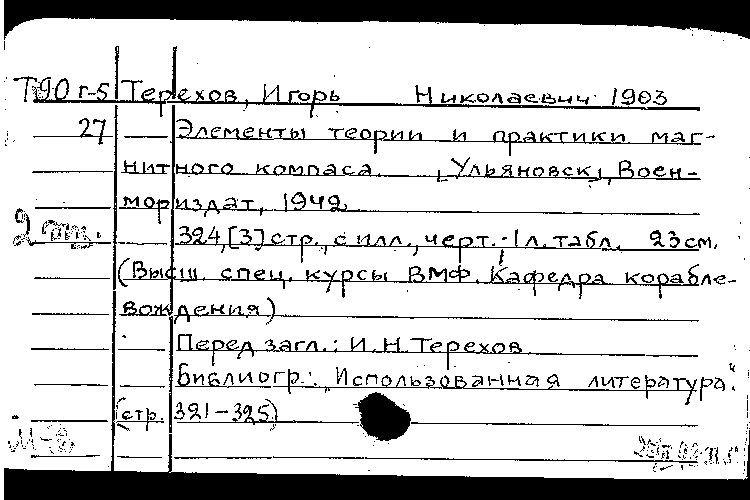 Т90 г-5 Терехов, Игорь Николаевич 1903
27 Элементы теории и практики маг-
нитного компаса. [Ульяновск], Воен-
мориздат, 1942
2 экз. 324, [3] стр., с илл., черт.; 1 л. табл. 23 см.
(Высш. спец. курсы ВМФ. Кафедра корабле-
вождения)
Перед загл.: И.Н. Терехов
Библиогр.: "Использованная литература"
(стр. 321-325)